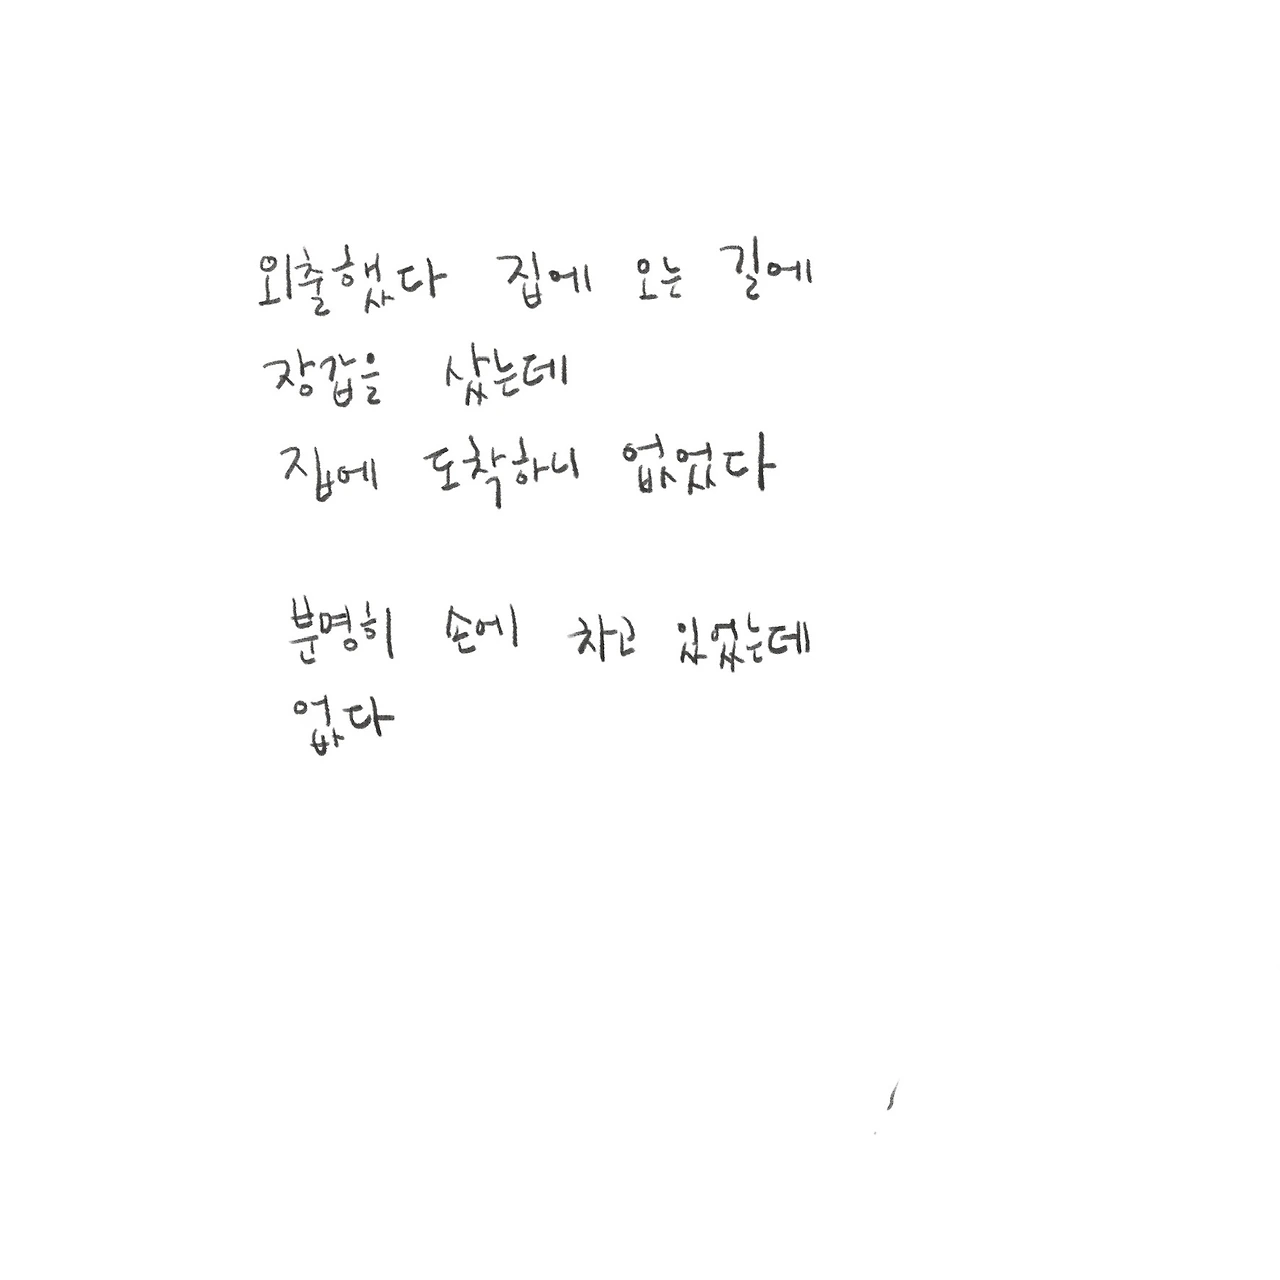 외출했다 집에 오는 길에
장갑을 샀는데
집에 도착하니 없었다
분명히 손에 차고 있었는데
없다